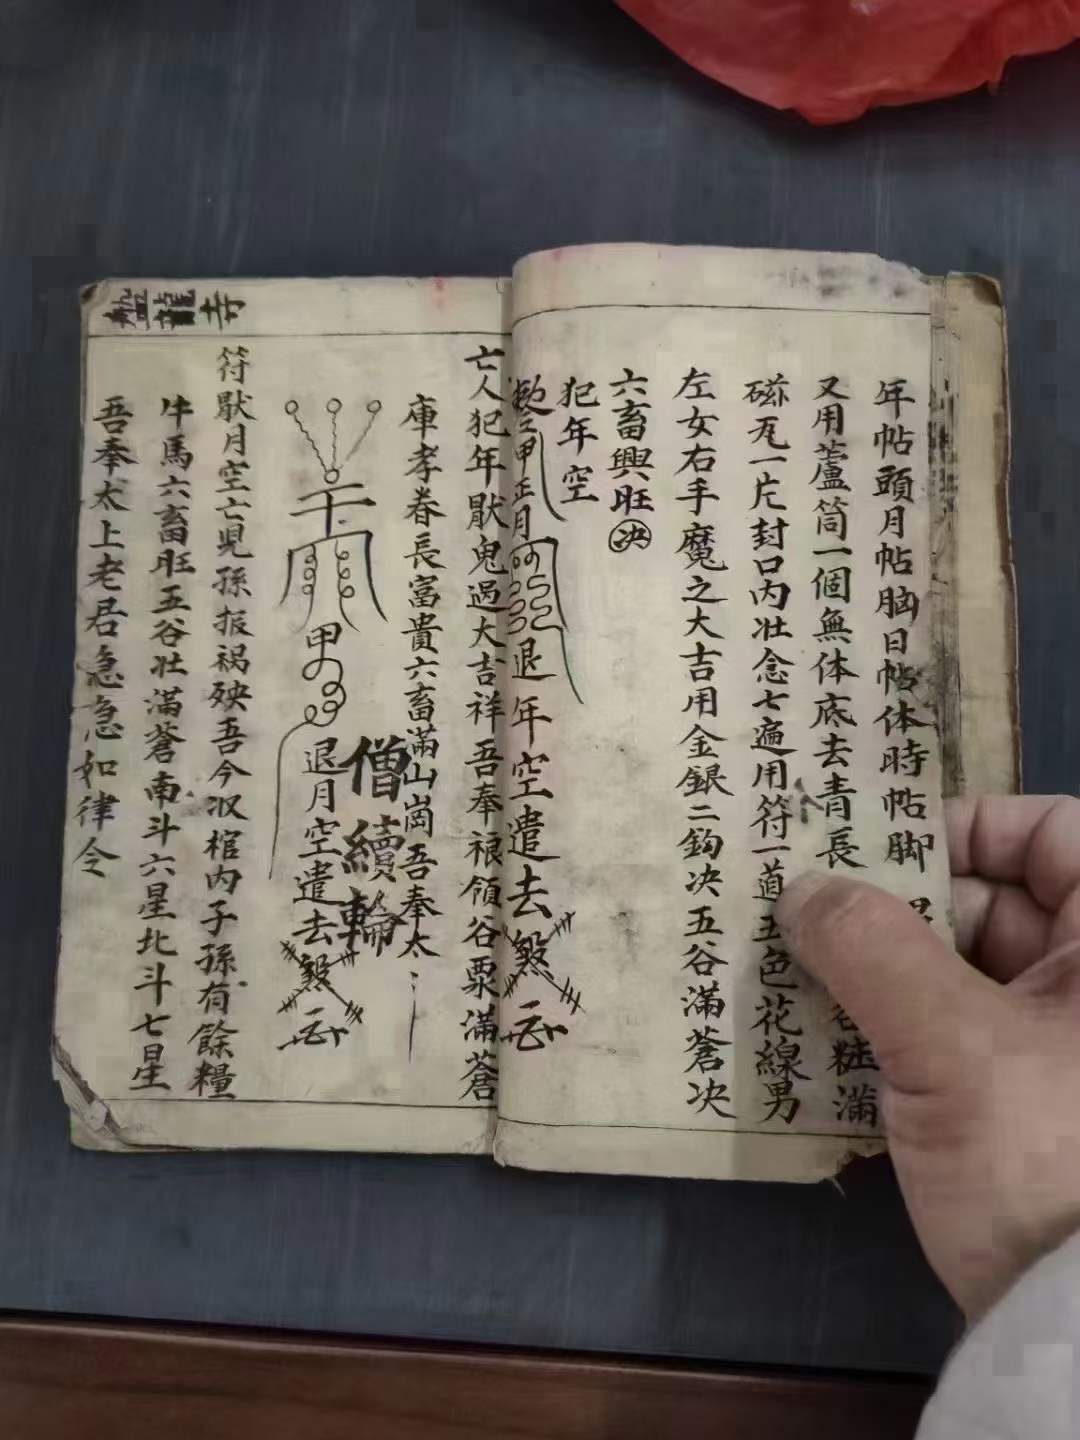 年帖頭月帖脑日帖体時帖脚
又用蘆筒一個無体底去青長
糕滿
磁瓦一片封口內壮念七遍用符一道五色花線男
左女右手魔之大吉用金銀二鈎决五谷滿蒼决
六畜興旺决
犯年空
正月
退年空遣去煞
亡人犯年猒鬼過大吉祥吾奉
領谷粟滿蒼
庫孝眷長富貴六畜滿山崗吾奉太
僧續輪
甲
退月空遣去煞
符猒月空亡児孫报禍殃吾今収棺內子孫有餘糧
牛馬六畜旺五谷壮滿蒼南斗六星北斗七星
吾奉太上老君急急如律令
盤龍寺